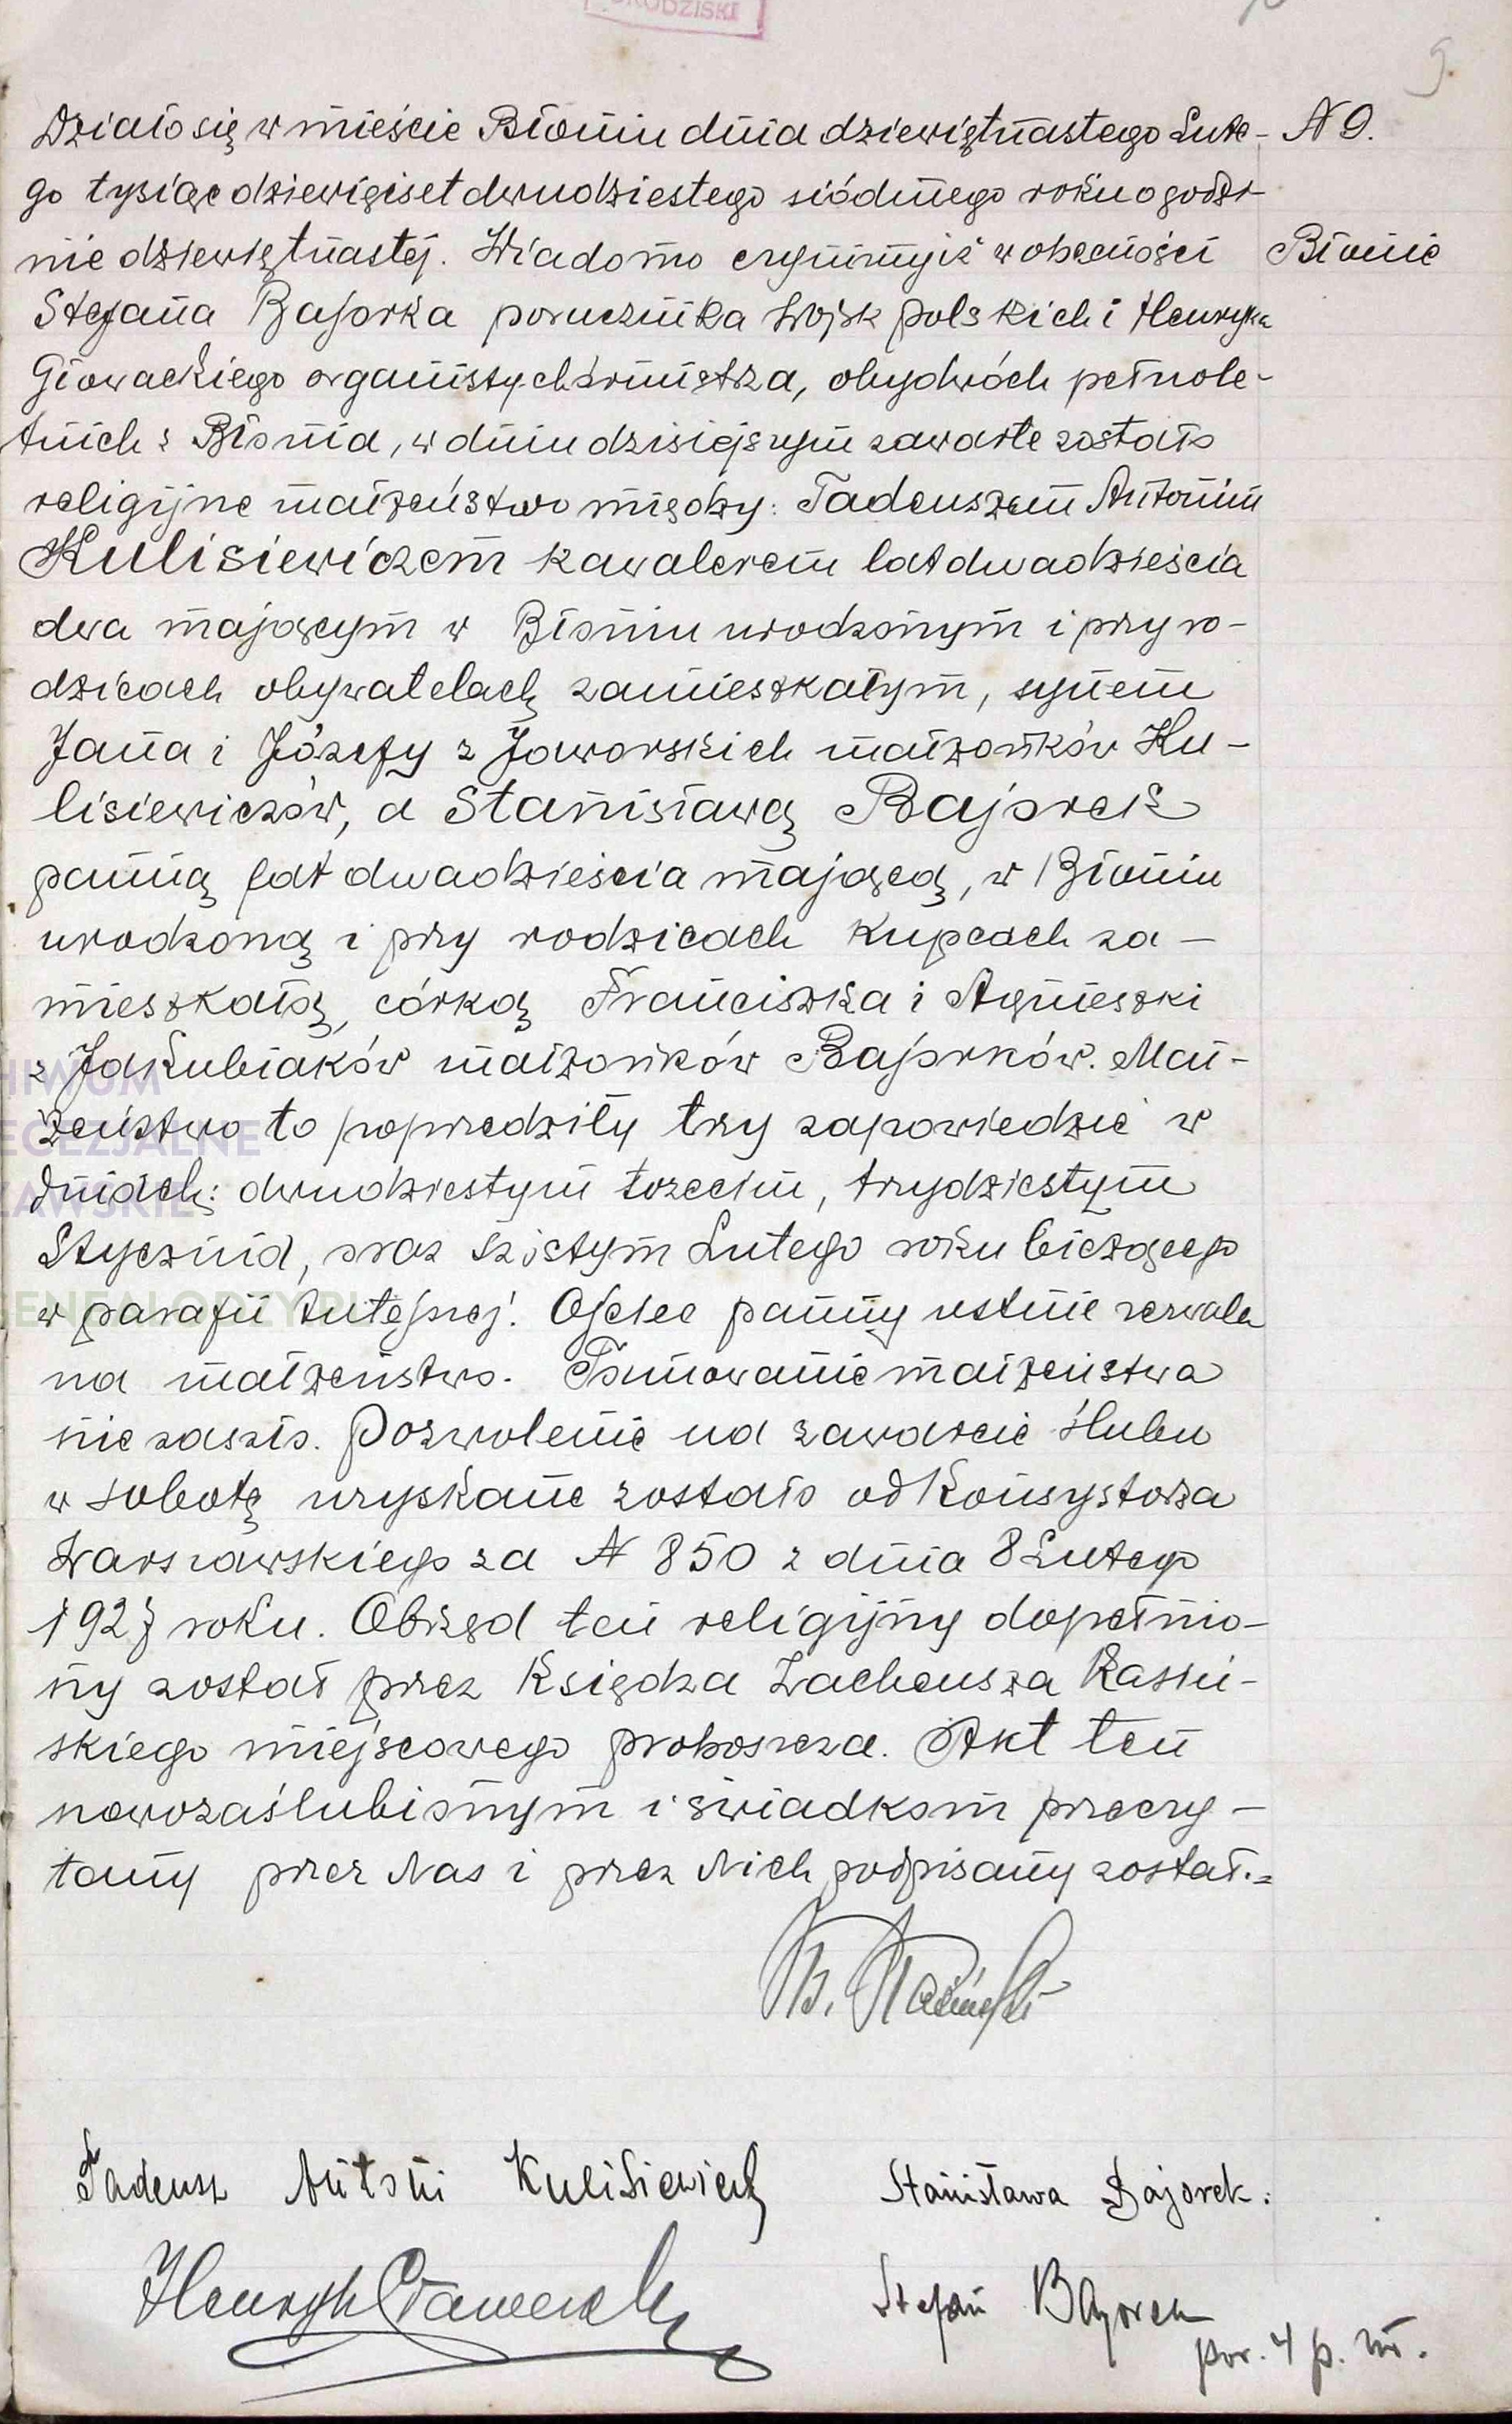 GRODZISKI
9.
Działo się w mieście Błoniu dnia dziewiętnastego Lute- N 9.
go tysiąc dziewięćset dwudziestego siódmego roku o godzi
nie dziewiętnastej. Wiadomo czynimy iż w obecności Błonie
Stefana Bajorka porucznika Wojsk polskich i Henryka
Głowackiego organisty chórmistrza, obydwóch pełnole-
tnich z Błonia, w dniu dzisiejszym zawarte zostało
religijne małżeństwo między: Tadeuszem Antonim
Kulisiewiczem kawalerem lat dwadzieścia
dwa mającym w Błoniu urodzonym i przy ro-
dzicach obywatelach zamieszkałym, synem
Jana i Józefy z Jaworskich małżonków Ku-
lisiewiczów, a Stanisławą Bajorek
panną lat dwadzieścia mającą, w Błoniu
urodzoną i przy rodzicach kupcach za-
mieszkałą, córką Franciszka i Agnieszki
z Jakubiaków małżonków Bajorków. Mał-
żeństwo to poprzedziły trzy zapowiedzie w
dniach: dwudziestym trzecim, trzydziestym
Stycznia, oraz szóstym Lutego roku bieżącego
w parafii tutejszej. Ojciec panny ustnie zezwala
na małżeństwo. Tamowanie małżeństwa
nie zaszło. Pozwolenie na zawarcie ślubu
w sobotę uzyskane zostało od Konsystorza
Warszawskiego za N 850 z dnia 8 Lutego
1927 roku. Obrzęd ten religijny dopełnio-
ny został przez Księdza Zacheusza Rasiń-
skiego miejscowego proboszcza. Akt ten
nowozaślubionym i świadkom przeczy-
tany przez Nas i przez Nich podpisany został.=
Tadeusz Antoni Kulisiewicz Stanisława Bajorek.
Henryk Głowacki Stefan Bajorek
por. 4 p.